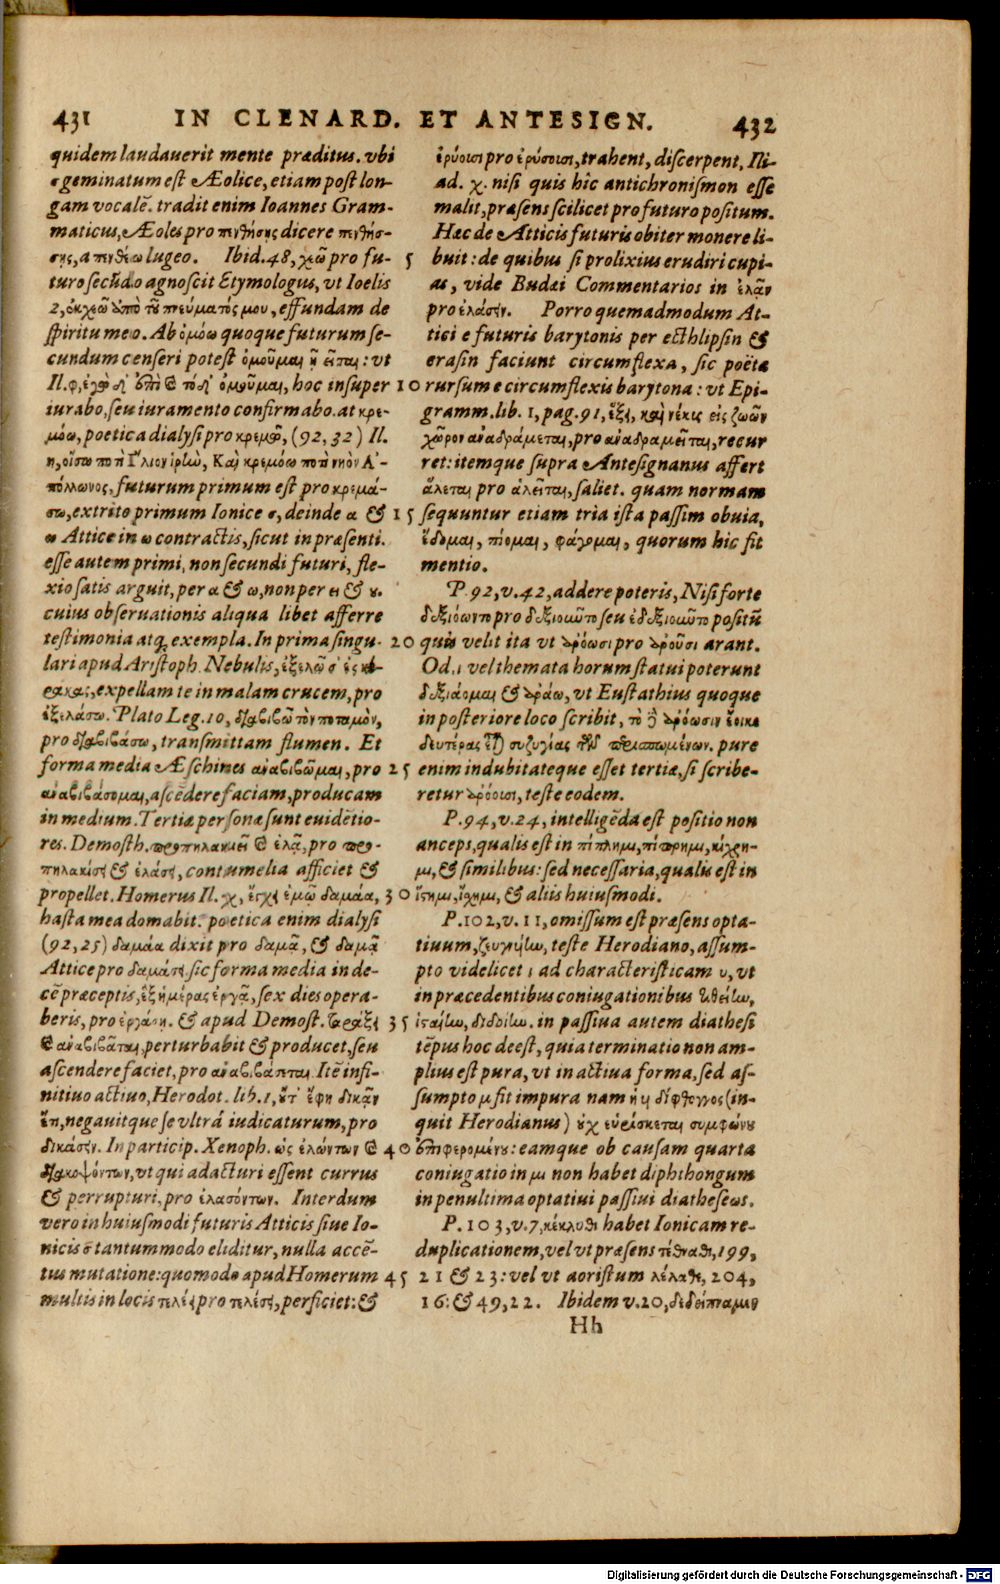 431 IN CLENARD. ET ANTESIGN. 432
quidem laudauerit mente præditus. vbi
σ geminatum est Æolice, etiam post lon-
gam vocalē. tradit enim Ioannes Gram-
maticus, Æoles pro πενθήσης dicere πενθήσ-
σης, a πενθέω lugeo. Ibid. 48, χεῶ pro fu-
turo secūdo agnoscit Etymologus, vt Ioelis
2, ἐκχεῶ ἀπὸ τοῦ πνεύματός μου, effundam de
spiritu meo. Ab ὀμόω quoque futurum se-
cundum censeri potest ὀμοῦμαι ἢ εῖται: vt
Il. φ, hoc insuper
iurabo, seu iuramento confirmabo. at κρε-
μόω, poetica dialysi pro κρεμῶ, (92, 32) Il.
η, οἴσω ποτὶ Ἴλιον ἱρὴν, Καὶ κρεμόω ποτὶ νηὸν Ἀ-
πόλλωνος, futurum primum est pro κρεμά-
σω, extrito primum Ionice σ, deinde α &
ω Attice in ω contractis, sicut in præsenti.
esse autem primi, non secundi futuri, fle-
xio satis arguit, per α & ω, non per ει & ου.
cuius obseruationis aliqua libet afferre
testimonia atq; exempla. In prima singu-
lari apud Aristoph. Nebulis, ἐξελῶ σ' ἐς κό-
ρακας, expellam te in malam crucem, pro
ἐξελάσω. Plato Leg. 10, διαβιβῶ τὸν ποταμὸν,
pro διαβιβάσω, transmittam flumen. Et
forma media Æschines ἀναβιβῶμαι, pro
ἀναβιβάσομαι, ascēdere faciam, producam
in medium. Tertiæ personæ sunt euidētio-
res. Demosth. προπηλακιεῖ καὶ ἐλᾷ, pro προ-
πηλακίσει & ἐλάσει, contumelia afficiet &
propellet. Homerus Il. χ, ἔγχει ἐμῷ δαμάα,
hasta mea domabit. poetica enim dialysi
(92, 25) δαμάα dixit pro δαμᾷ, & δαμᾷ
Attice pro δαμάσει. sic forma media in de-
cē præceptis, ἓξ ἡμέρας ἐργᾷ, sex dies opera-
beris, pro ἐργάσῃ. & apud Demost. ταράξει
καὶ ἀναβιβᾶται, perturbabit & producet, seu
ascendere faciet, pro Itē infi-
nitiuo actiuo, Herodot. lib. 1, οὔτ' ἔφη δικᾷν
ἔτι, negauitque se vltrá iudicaturum, pro
δικάσειν. In particip. Xenoph. ὡς ἐλώντων καὶ
διακοψόντων, vt qui adacturi essent currus
& perrupturi, pro ἐλασόντων. Interdum
vero in huiusmodi futuris Atticis siue Io-
nicis σ tantummodo eliditur, nulla accē-
tus mutatione: quomodo apud Homerum
multis in locis τελέει pro τελέσει, perficiet: &
ἐρύουσι pro ἐρύσουσι, trahent, discerpent, Ili-
ad. χ. nisi quis hîc antichronismon esse
malit, præsens scilicet pro futuro positum.
Hæc de Atticis futuris obiter monere li-
5 buit: de quibus si prolixius erudiri cupi-
as, vide Budæi Commentarios in ἐλᾷν
pro ἐλάσειν. Porro quemadmodum At-
tici e futuris barytonis per ecthlipsin &
erasin faciunt circumflexa, sic poëtæ
10 rursum e circumflexis barytona: vt Epi-
gramm. lib. 1, pag. 91, ἕξει, καὶ νέκυς εἰς ζωῶν
χῶρον ἀναδράμεται, pro ἀναδραμεῖται, recur
ret: itemque supra Antesignanus affert
ἅλεται pro ἁλεῖται, saliet. quam normam
15 sequuntur etiam tria ista passim obuia,
ἔδομαι, πίομαι, φάγομαι, quorum hic fit
mentio.
P. 92, v. 42, addere poteris, Nisi forte
δεξιόωντο pro δεξιοῦντο seu ἐδεξιοῦντο positū
20 quis velit ita vt ἀρόωσι pro ἀροῦσι arant.
Od. ι vel themata horum statui poterunt
δεξιάομαι & ἀράω, vt Eustathius quoque
in posteriore loco scribit, τὸ δὲ ἀρόωσιν ἔοικε
δευτέρας εἶναι συζυγίας τῶν περισπωμένων. pure
25 enim indubitateque esset tertiæ, si scribe-
retur ἀρόουσι, teste eodem.
P. 94, v. 24, intelligēda est positio non
anceps, qualis est in πίπλημι, πίπρημι, κίχρη-
μι, & similibus: sed necessaria, qualis est in
30 ἵστημι, ἴσχημι, & aliis huiusmodi.
P. 102, v. 11, omissum est præsens opta-
tiuum, ζευγνύιην, teste Herodiano, assum-
pto videlicet ι ad characteristicam υ, vt
in præcedentibus coniugationibus τιθείην,
35 ἱσταίην, διδοίην. in passiua autem diathesi
tēpus hoc deest, quia terminatio non am-
plius est pura, vt in actiua forma, sed as-
sumpto μ fit impura nam ἡ υι δίφθογγος (in-
quit Herodianus) οὐχ εὑρίσκεται συμφώνου
40 ἐπιφερομένου: eamque ob causam quarta
coniugatio in μι non habet diphthongum
in penultima optatiui passiui diatheseωs.
P. 103, v. 7, κέκλυθι habet Ionicam re-
duplicationem, vel vt præsens τέθναθι, 199,
45 21 & 23: vel vt aoristum λέλαθε, 204,
16: & 49, 22. Ibidem v. 20, δεδείπναμεν
Hh
Digitalisierung gefördert durch die Deutsche Forschungsgemeinschaft - DFG